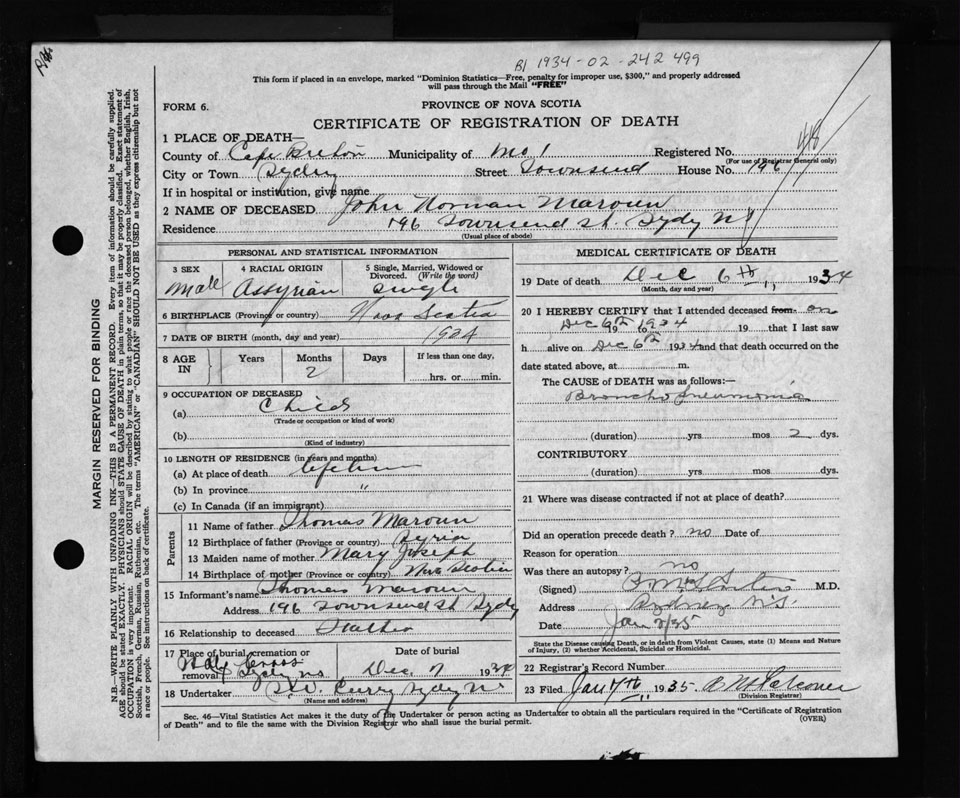 B1 1934-02-242 499
This form if placed in an envelope, marked "Dominion Statistics—Free, penalty for improper use, $300," and properly addressed
will pass through the Mail "FREE"
FORM 6.
PROVINCE OF NOVA SCOTIA
CERTIFICATE OF REGISTRATION OF DEATH
1 PLACE OF DEATH—
County of Cape Breton Municipality of No 1 Registered No.
(For use of Registrar General only)
City or Town Sydney Street Townsend House No. 196
If in hospital or institution, give name
2 NAME OF DECEASED John Norman Maroun
Residence 196 Townsend St. Sydy NS
(Usual place of abode)
PERSONAL AND STATISTICAL INFORMATION
3 SEX Male
4 RACIAL ORIGIN Assyrian
5 Single, Married, Widowed or Divorced. (Write the word) Single
6 BIRTHPLACE (Province or country) Nova Scotia
7 DATE OF BIRTH (month, day and year) 1934
8 AGE IN Years Months 2 Days If less than one day, hrs. or min.
9 OCCUPATION OF DECEASED
(a) Child
(Trade or occupation or kind of work)
(b)
(Kind of industry)
10 LENGTH OF RESIDENCE (in years and months)
(a) At place of death lifetime
(b) In province "
(c) In Canada (if an immigrant)
Parents
11 Name of father Thomas Maroun
12 Birthplace of father (Province or country) Syria
13 Maiden name of mother Mary Joseph
14 Birthplace of mother (Province or country) Nova Scotia
15 Informant's name Thomas Maroun
Address 196 Townsend St Sydy
16 Relationship to deceased Father
17 Place of burial, cremation or removal Holy Cross Sydy NS
Date of burial Dec 7 1934
18 Undertaker Curry Sydy NS
(Name and address)
MEDICAL CERTIFICATE OF DEATH
19 Date of death Dec 6th 1934
(Month, day and year)
20 I HEREBY CERTIFY that I attended deceased from on
Dec 6th 1934 19 to 19 that I last saw
h alive on Dec 6th 1934 and that death occurred on the
date stated above, at m.
The CAUSE OF DEATH was as follows:—
Broncho Pneumonia
(duration) yrs mos 2 dys.
CONTRIBUTORY
(duration) yrs. mos. dys.
21 Where was disease contracted if not at place of death?
Did an operation precede death? no Date of
Reason for operation
Was there an autopsy? no
(Signed) M.D.
Address Sydney N.S.
Date Jan 7/35
State the Disease causing Death, or in death from Violent Causes, state (1) Means and Nature
of Injury, (2) whether Accidental, Suicidal or Homicidal.
22 Registrar's Record Number
23 Filed Jan 7th 1935
(Division Registrar)
Sec. 46—Vital Statistics Act makes it the duty of the Undertaker or person acting as Undertaker to obtain all the particulars required in the "Certificate of Registration
of Death" and to file the same with the Division Registrar who shall issue the burial permit.
(OVER)
MARGIN RESERVED FOR BINDING
N.B.—WRITE PLAINLY WITH UNFADING INK—THIS IS A PERMANENT RECORD. Every item of information should be carefully supplied.
AGE should be stated EXACTLY. PHYSICIANS should STATE CAUSE OF DEATH in plain terms, so that it may be properly classified. Exact statement of
OCCUPATION is very important. RACIAL ORIGIN will be described by stating to what people or race the deceased person belonged, whether English, Irish,
Scottish, French, German, Russian, Ruthenian, etc. The terms "AMERICAN" or "CANADIAN" SHOULD NOT BE USED as they express citizenship but not
a race or people. See instructions on back of certificate.